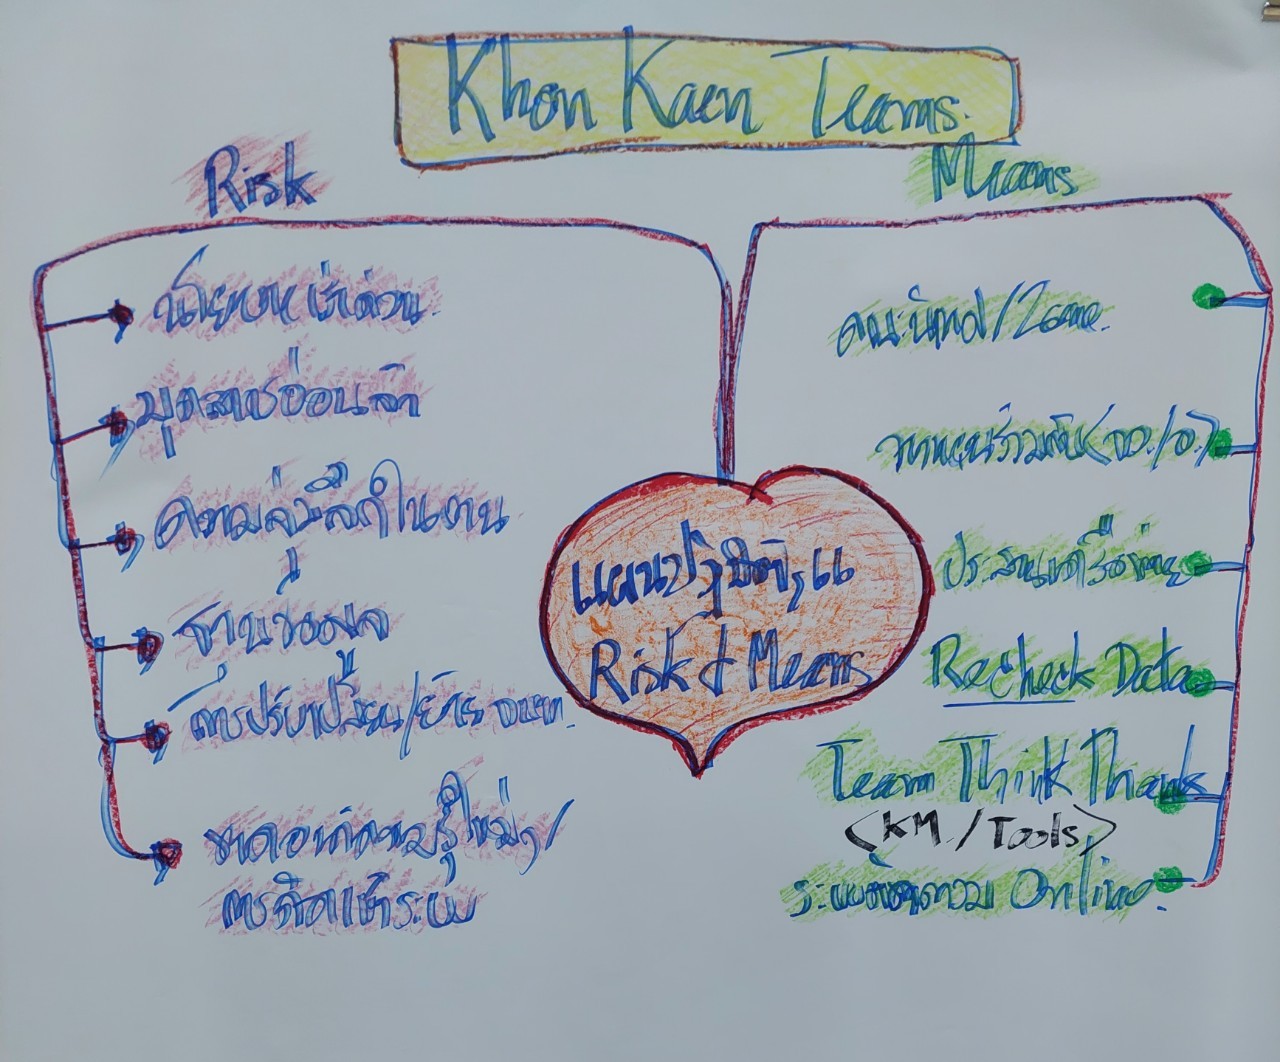 Khon Kaen Teams.
Risk
นโยบายเร่งด่วน
บุคลากรอ่อนล้า
ความรู้สึกในงาน
ฐานข้อมูล
การปรับเปลี่ยน/ย้าย จนท.
ขาดองค์ความรู้ใหม่ๆ/
การคิดเชิงระบบ
แผนปฏิบัติ
Risk & Means
Means
คณะนิเทศ/Zone.
ประสานเครือข่าย
Recheck Data
Team Think Thank
(KM/Tools)
ระบบติดตาม Online.